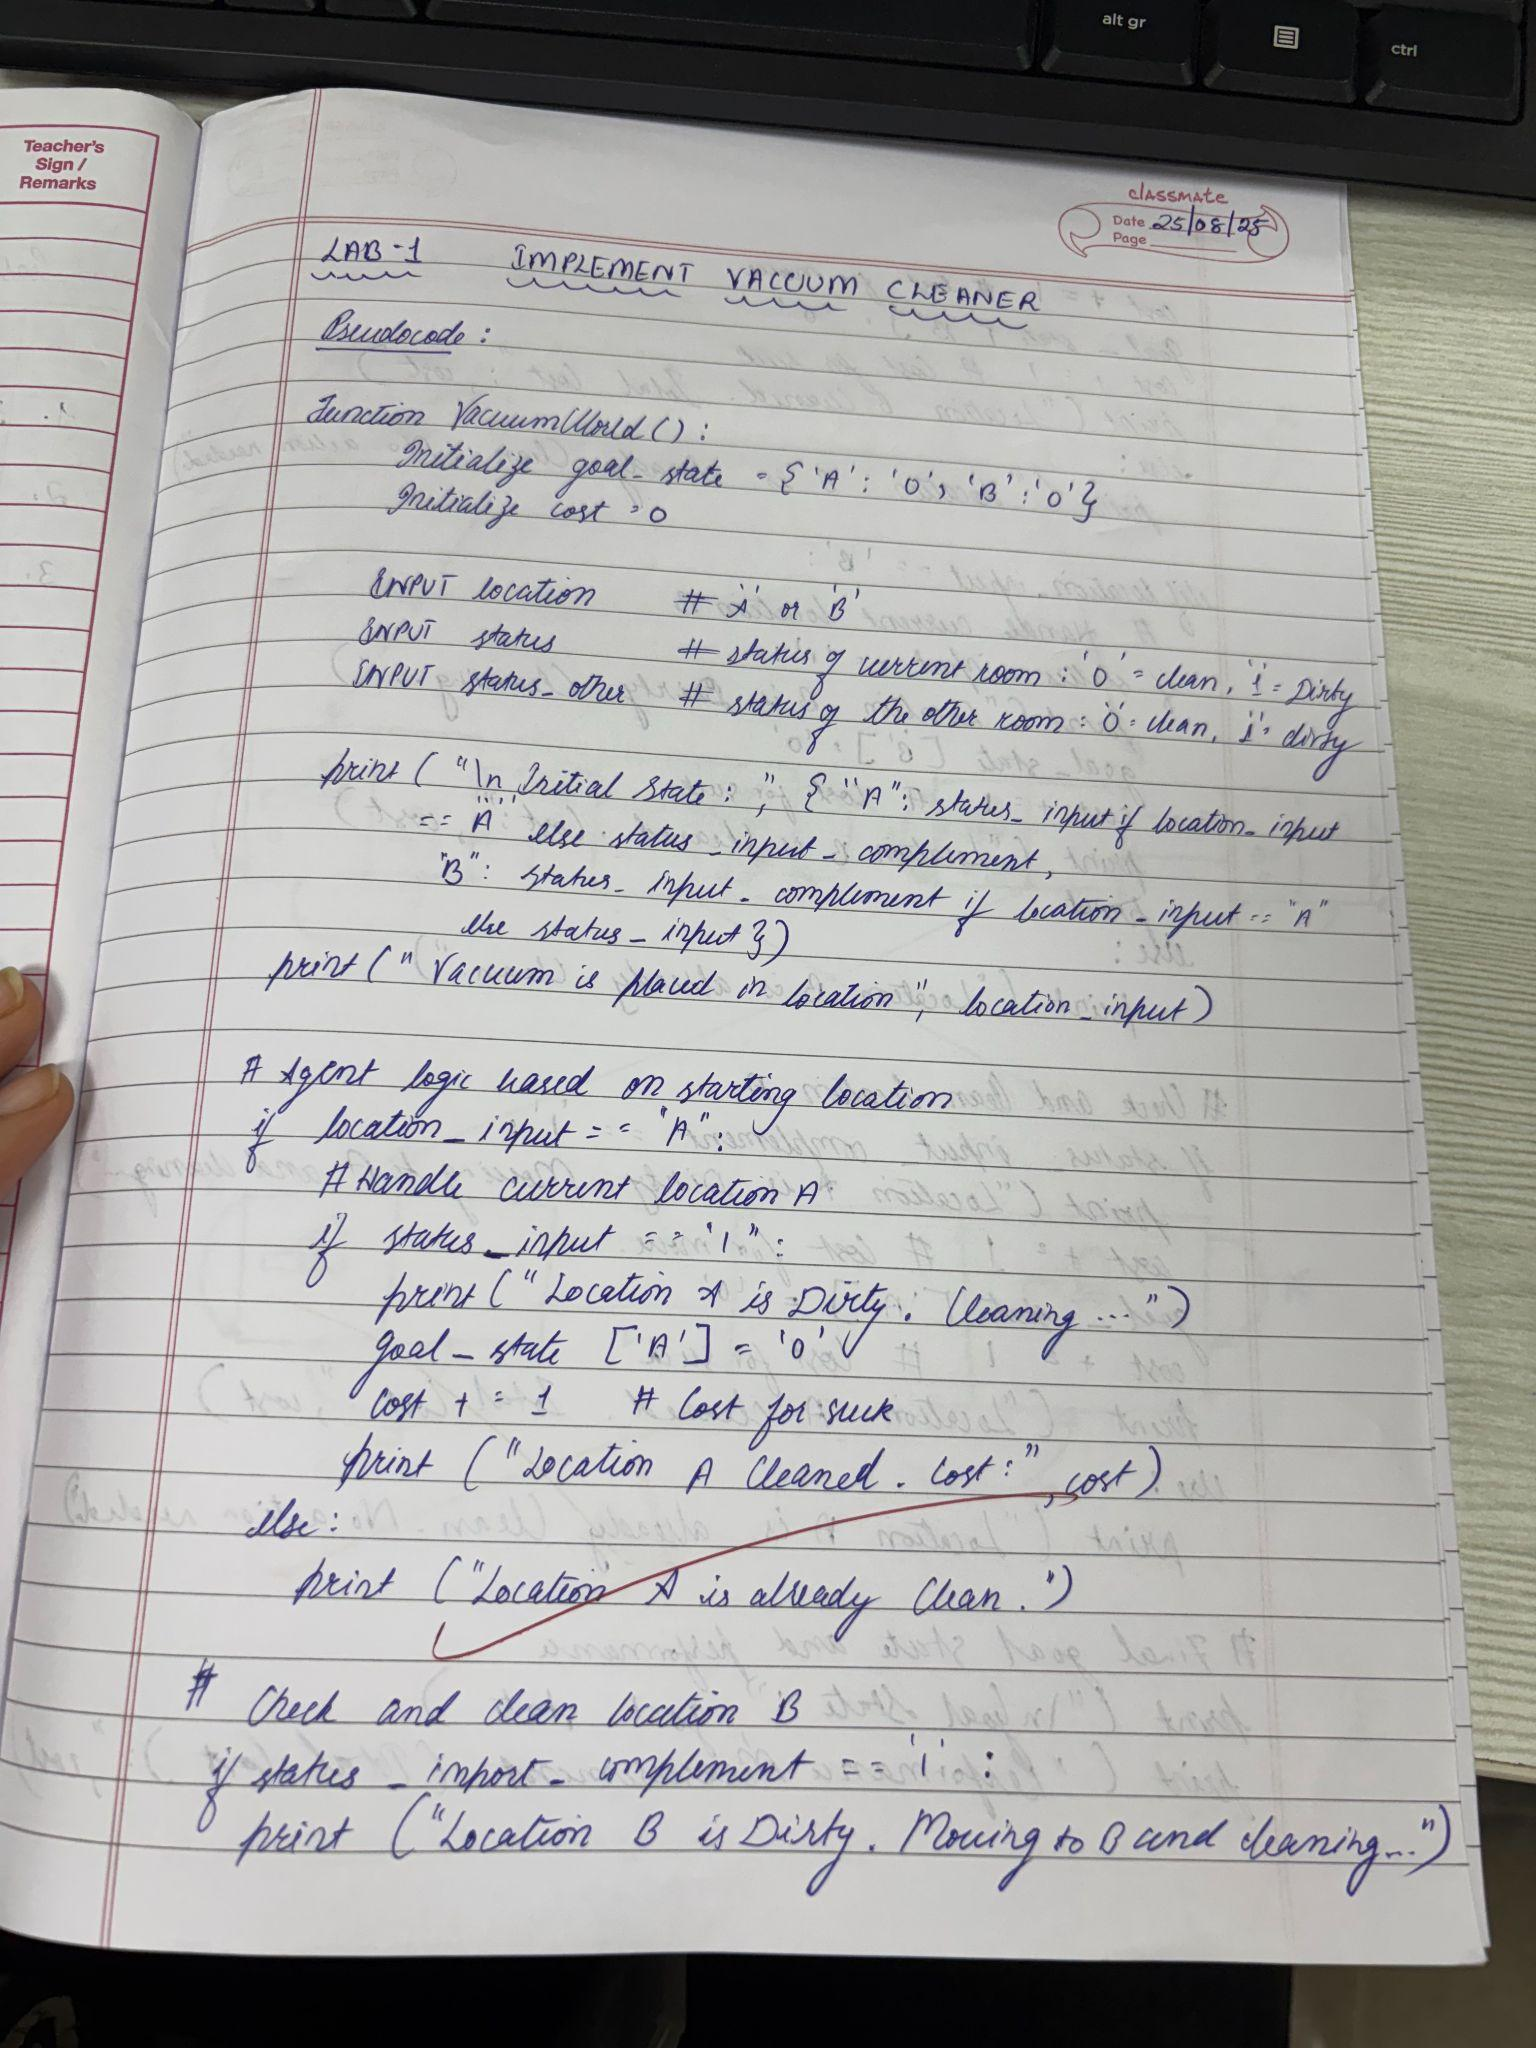 alt gr
ctrl
Teacher's
Sign /
Remarks
classmate
Date 25/08/25
Page
LAB-1 IMPLEMENT VACUUM CLEANER
Pseudocode :
Function VacuumWorld() :
Initialize goal_state = {'A' : '0', 'B' : '0'}
Initialize cost = 0
INPUT location # 'A' or 'B'
INPUT status # status of current room : '0' = clean, '1' = Dirty
INPUT status_other # status of the other room : '0' = clean, '1' = dirty
print ( "\n Initial State : ", { "A" : status_input if location_input
== "A" else status_input_complement,
"B" : status_input_complement if location_input == "A"
else status_input })
print ( " Vacuum is placed in location ", location_input)
# Agent logic based on starting location
if location_input == "A" :
# Handle current location A
if status_input == '1' :
print ( " Location A is Dirty. Cleaning ... " )
goal_state ['A'] = '0'
cost += 1 # Cost for suck
print ( " Location A Cleaned . Cost : " , cost )
else :
print ( "Location A is already Clean . " )
# Check and clean location B
if status_inport_complement == '1' :
print ( "Location B is Dirty. Moving to B and cleaning... " )